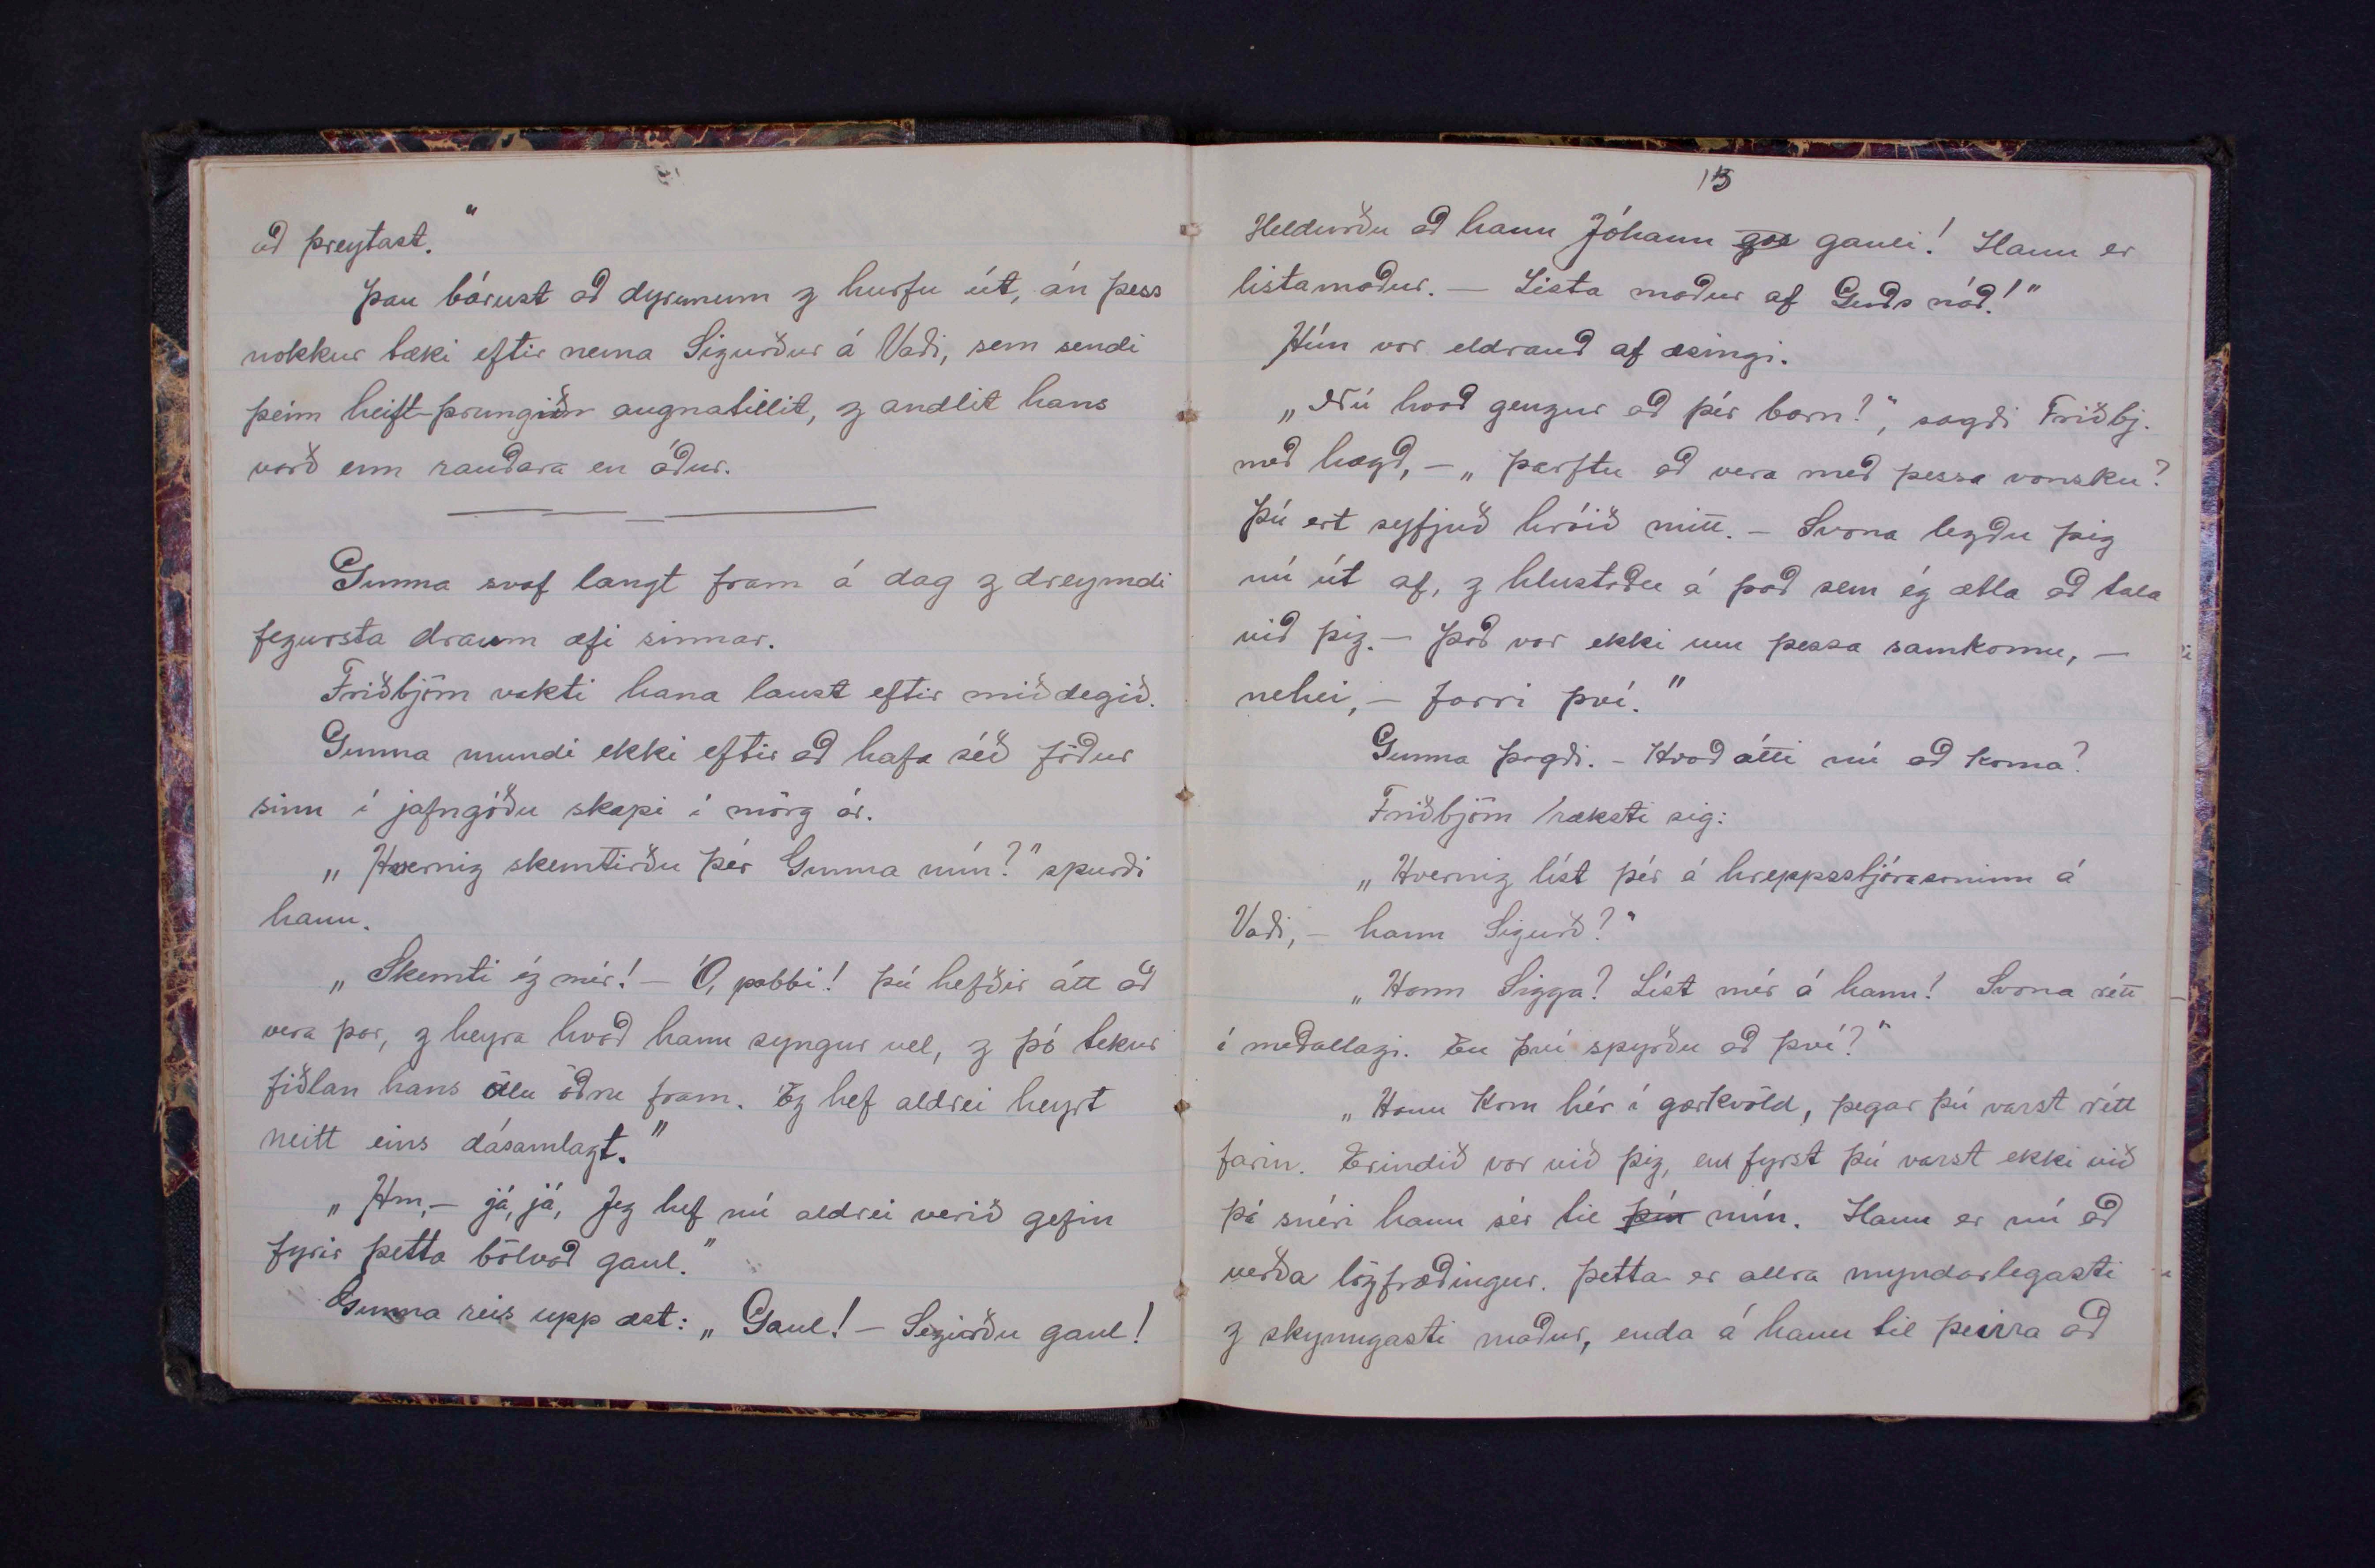 að þreytast."
Þau bárust að dyrunum & hurfu út, án þess
nokkur tæki eftir nema Sigurður á Vaði, sem sendi
þeim heift-þrungið augnatillit, & andlit hans
varð enn rauðara en áður.
Gunna svaf langt fram á dag & dreymdi
fegursta draum æfi sinnar.
Friðbjörn vakti hana laust eftir miðdegið.
Gunna mundi ekki eftir að hafa séð föður
sinn í jafngóðu skapi í mörg ár.
„Hvernig skemtirðu þér Gunna mín?" spurði
hann.
„Skemti ég mér! — Ó, pabbi! þú hefðir átt að
vera þar, & heyra hvað hann syngur vel, & þó tekur
fiðlan hans öllu öðru fram. Ég hef aldrei heyrt
neitt eins dásamlagt."
„Hm, — já, já, Jeg hef nú aldrei verið gefin
fyrir þetta bölvað gaul."
Gunna reis upp æst: „Gaul! — Segirðu gaul!
13
Heldurðu að hann Jóhann goe gauli! Hann er
listamaður. — Lista maður af Guðs náð!"
Hún var eldrauð af æsingi.
„Nú hvað gengur að þér barn?", sagði Friðbj.
með hægð, — „þarftu að vera með þessa vonsku?
Þú ert syfjuð hróið mitt. — Svona legðu þig
nú út af, & hlustaðu á það sem ég ætla að tala
við þig. — Það var ekki um þessa samkomu, —
nehei, — farri því."
Gunna þagði. — Hvað átti nú að koma?
Friðbjörn ræksti sig:
„Hvernig líst þér á hreppsstjórasoninn á
Vaði, — hann Sigurð?"
„Hann Sigga? Líst mér á hann! Svona rétt
í meðallagi. En því spyrðu að því?"
„Hann kom hér í gærkvöld, þegar þú varst rétt
farin. Erindið var við þig, en fyrst þú varst ekki við
þá snéri hann sér til þín mín. Hann er nú að
verða lögfræðingur. Þetta er allra myndarlegasti
& skynugasti maður, enda á hann til þeirra að